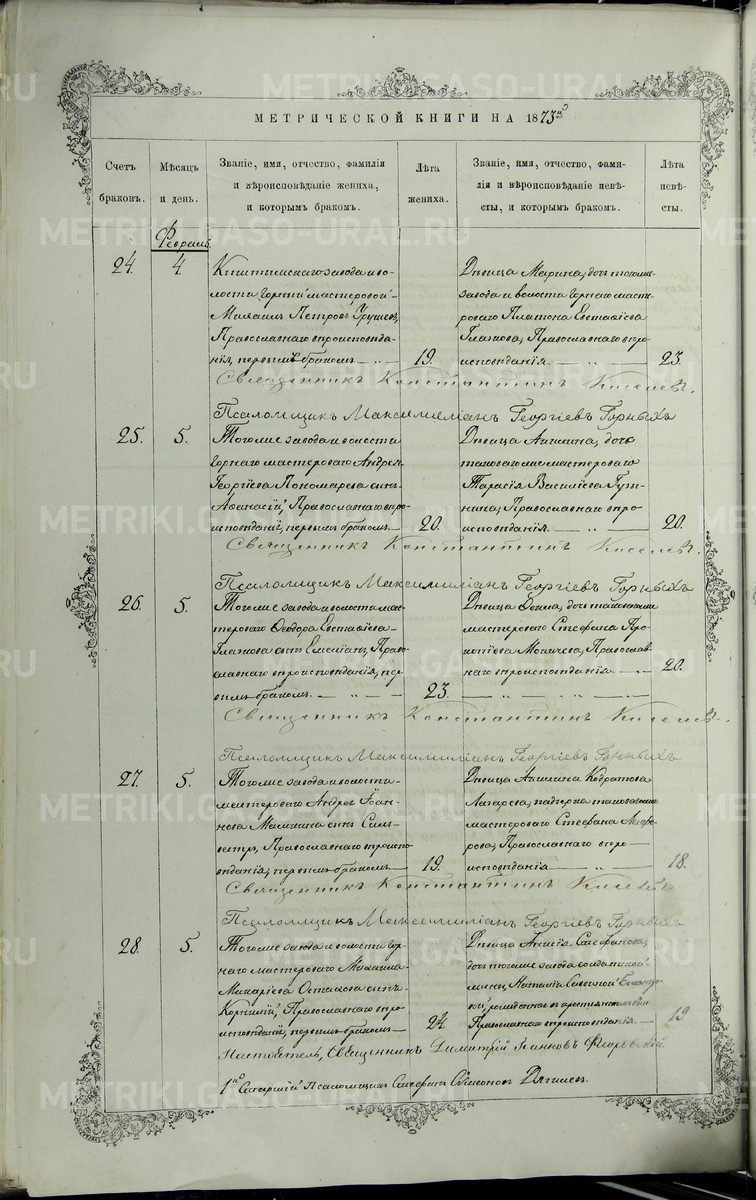 МЕТРИЧЕСКОЙ КНИГИ НА 1873й
Счетъ браковъ.
Мѣсяцъ и день.
Званіе, имя, отчество, фамилія
и вѣроисповѣданіе жениха,
и которымъ бракомъ.
Лѣта жениха.
Званіе, имя, отчество, фами-
лія и вѣроисповѣданіе невѣ-
сты, и которымъ бракомъ.
Лѣта невѣ-сты.
Февраль
24. 4.
Кыштымскаго завода и во-
лости горный мастеровой
Михаилъ Петровъ
Православнаго вѣроисповѣда-
нія, первымъ бракомъ 19.
Дѣвица Марина, дочь того же
завода и волости горнаго масте-
роваго Платона Евставіева
Глазкова, Православнаго вѣро-
исповѣданія. 23.
Священникъ Константинъ Киселевъ.
Псаломщикъ Максимиліанъ Георгіевъ Горныхъ
25. 5.
Того же завода и волости
горнаго мастероваго Андрея
Георгіева Пономарева сынъ
Аѳанасій, Православнаго вѣро-
исповѣданія, первымъ бракомъ 20.
Дѣвица Акилина, дочь
таковаго же мастероваго
Тарасія Василіева
Православнаго вѣро-
исповѣданія. 20.
Священникъ Константинъ Киселевъ.
Псаломщикъ Максимиліанъ Георгіевъ Горныхъ
26. 5.
Того же завода и волости мас-
тероваго Ѳеодора Евставіева
Глазкова сынъ Емеліанъ, Право-
славнаго вѣроисповѣданія, пер-
вымъ бракомъ. 23.
Дѣвица дочь таковаго же
мастероваго Стефана Про-
копіева Православ-
наго вѣроисповѣданія 20.
Священникъ Константинъ Киселевъ.
Псаломщикъ Максимиліанъ Георгіевъ Горныхъ
27. 5.
Того же завода и волости
мастероваго Андрея Іоан-
нова сынъ Силь-
вестръ, Православнаго вѣроиспо-
вѣданія, первымъ бракомъ 19.
Дѣвица Акилина Кодратова
Лазарева, падчерица таковаго же
мастероваго Стефана
Православнаго вѣро-
исповѣданія 18.
Священникъ Константинъ Киселевъ
Псаломщикъ Максимиліанъ Георгіевъ Горныхъ
28. 5.
Того же завода и волости гор-
наго мастероваго Михаила
Макаріева Остахова сынъ
Корнилій, Православнаго вѣро-
исповѣданія, первымъ бракомъ 24.
Дѣвица Анисія Стефанова,
дочь того же завода солдатской
жены Наталіи
Православнаго вѣроисповѣданія 19
Настоятель, Священникъ Димитрій Іоанновъ
1й Старшій Псаломщикъ Стефанъ Симеоновъ
METRIKI.GASO-URAL.RU